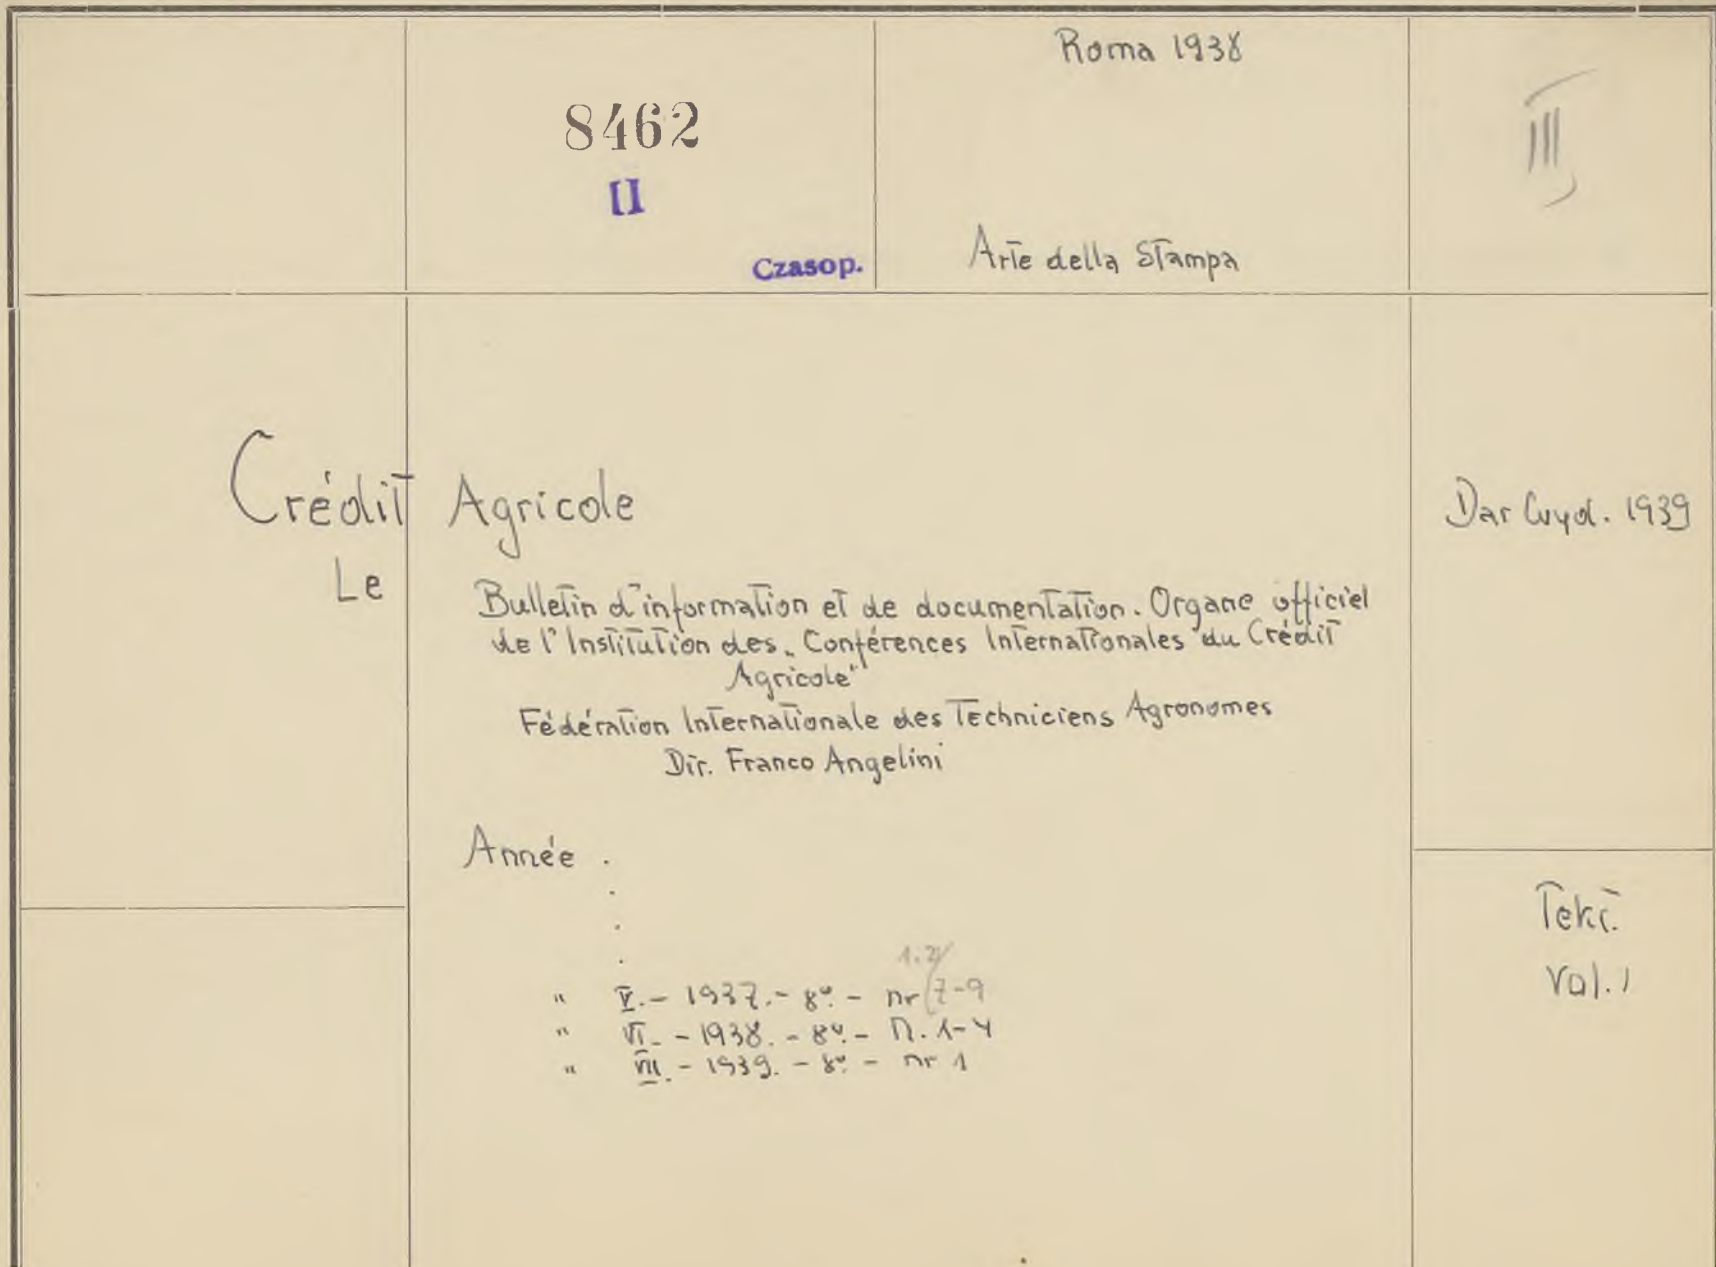 Roma 1938
8462
III
II
Czasop.
Arte della Stampa
Crédit Agricole
Le
Dar Wyd. 1939
Bulletin d'information et de documentation. Organe officiel
de l'Institution des „Conférences Internationales du Crédit
Agricole"
Fédération Internationale des Techniciens Agronomes
Dir. Franco Angelini
Année .
.
.
.
Teki.
Vol. 1
1.2/
" V. - 1937. - 8º. - nr 7-9
" VI. - 1938. - 8º. - n. 1-4
" VII. - 1939. - 8º. - nr 1